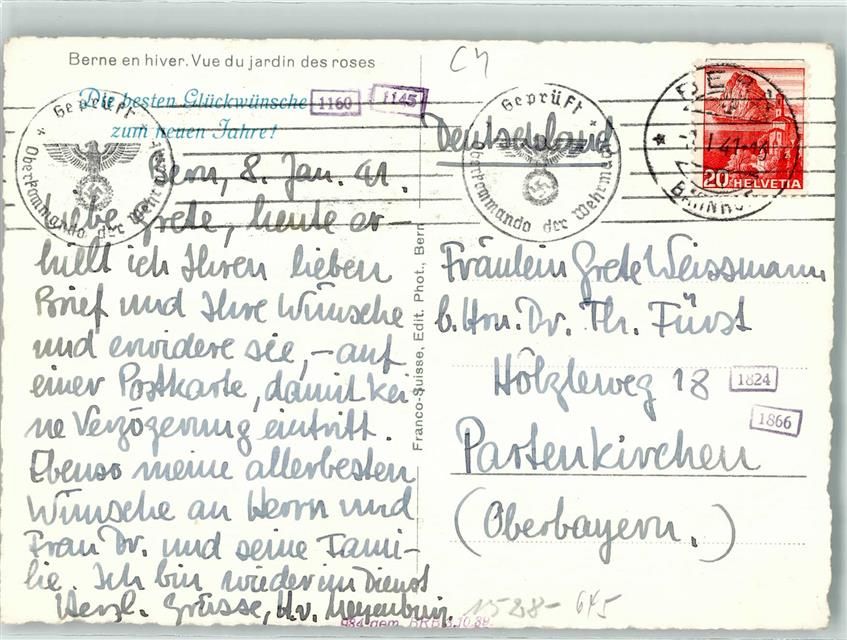 Berne en hiver. Vue du jardin des roses
Die besten Glückwünsche
zum neuen Jahre!
1160
1145
Geprüft
Oberkommando der Wehrmacht
Bern, 8. Jan. 41.
Liebe Grete, heute er-
hielt ich Ihren lieben
Brief und Ihre Wünsche
und erwidere sie, – auf
einer Postkarte, damit kei
ne Verzögerung eintritt.
Ebenso meine allerbesten
Wünsche an Herrn und
Frau Dr. und seine Fami-
lie. Ich bin wieder im Dienst
Herzl. Grüsse,
Franco-Suisse, Edit. Phot., Bern
CH
Geprüft
Oberkommando der Wehrmacht
Deutschland
20 HELVETIA
Fräulein Grete Weissmann
b. Hrn. Dr. Th. Fürst
Hölzleweg 18
1824
1866
Partenkirchen
(Oberbayern.)
1528- 645